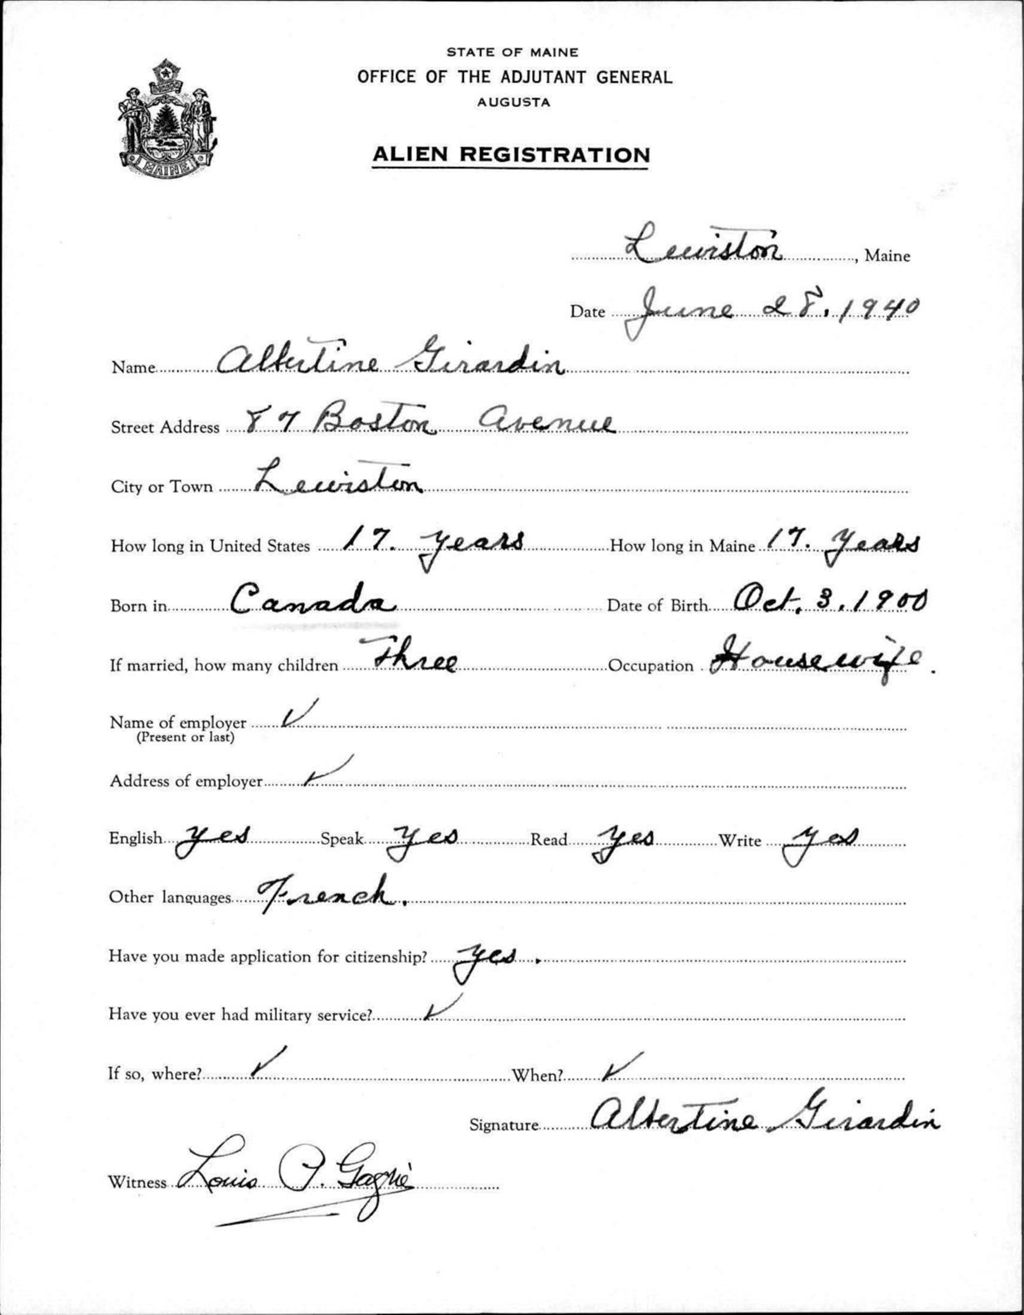 STATE OF MAINE
OFFICE OF THE ADJUTANT GENERAL
AUGUSTA
ALIEN REGISTRATION
MAINE
Lewiston, Maine
Date June 28, 1940
Name Albertine Girardin
Street Address 87 Boston Avenue
City or Town Lewiston
How long in United States 17. years How long in Maine 17. Years
Born in Canada Date of Birth Oct. 3. 1900
If married, how many children Three Occupation Housewife.
Name of employer ✓
(Present or last)
Address of employer ✓
English yes Speak Yes Read Yes Write yes
Other languages French.
Have you made application for citizenship? yes.
Have you ever had military service? ✓
If so, where? ✓ When? ✓
Signature Albertine Girardin
Witness Louis P. Gagné